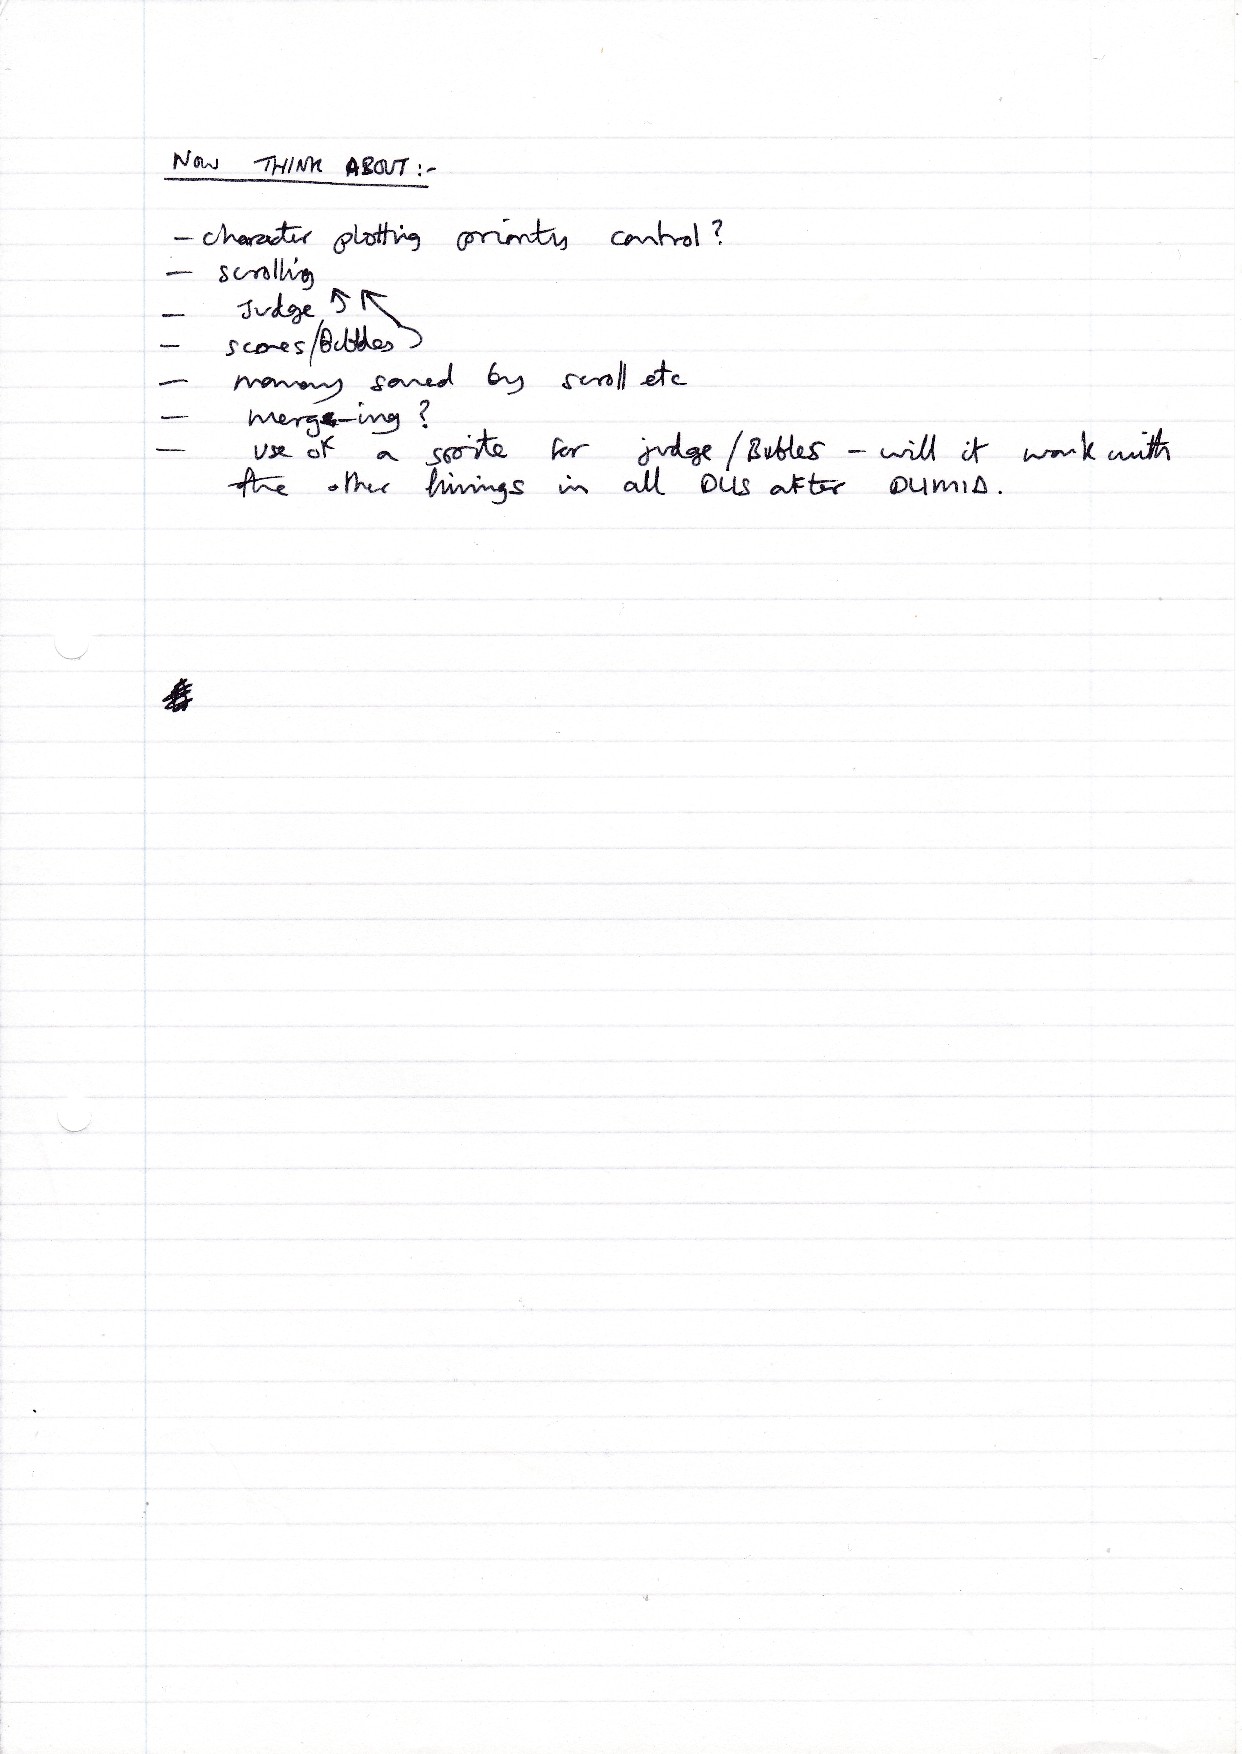 NOW THINK ABOUT:-
- character plotting priority control?
- scrolling
- Judge
- scores/Bubbles
- memory saved by scroll etc
- merge-ing?
- use of a sprite for judge/Bubles - will it work with
the other timings in all OUS after OUMID.